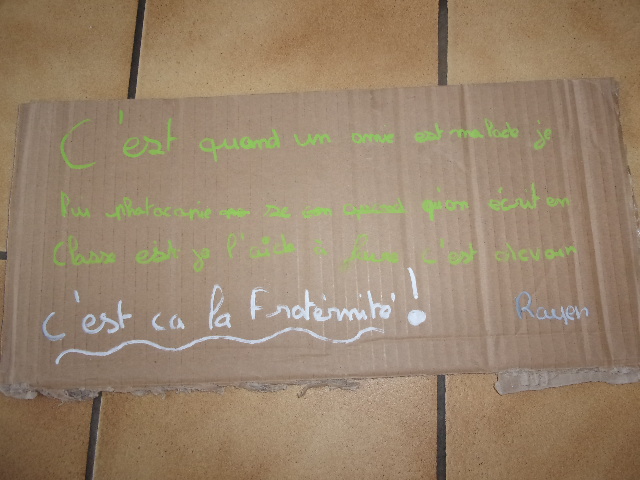 C'est quand un amie est malade je
lui photocopie se qu'on écrit en
Classe est je l'aide à faire c'est devoir
C'est ca la Fratérnité !
Rayen